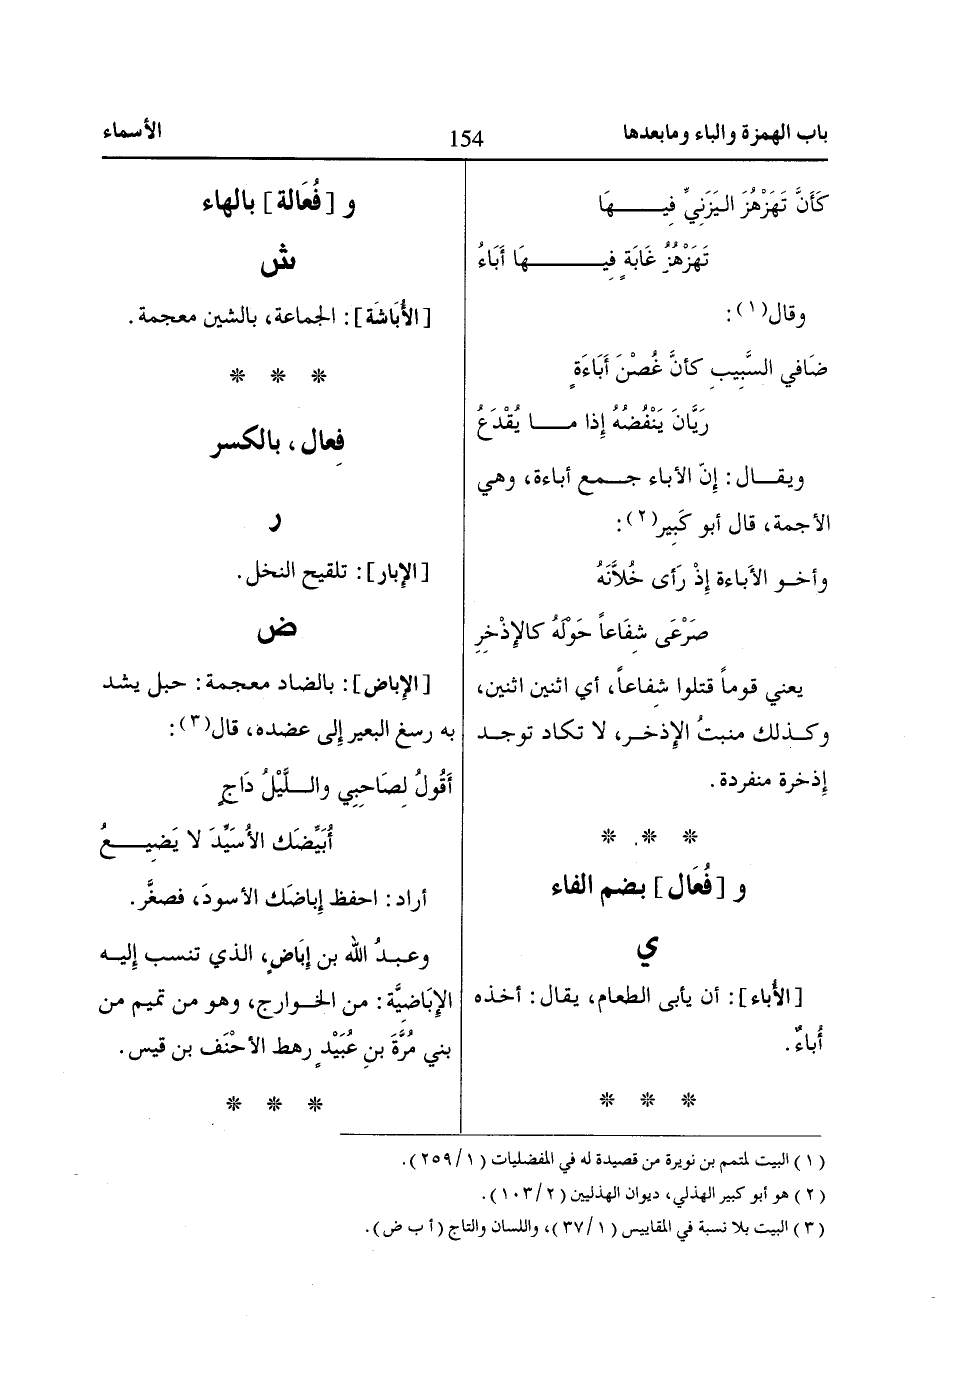 باب الهمزة والباء ومابعدها
154
الأسماء
كَأَنَّ تَهَزْهُزَ اليَزَنِيِّ فِيــــهَا
تَهَزْهُزُ غَابَةٍ فِيــــــهَا أَبَاءُ
وقال(١):
ضَافي السَّبِيبِ كأنَّ غُصْنَ أَبَاءَةٍ
رَيَّانَ يَنْفُضُهُ إذا مــا يُقْدَعُ
ويقــال: إنّ الأباء جــمع أباءة، وهي
الأجمة، قال أبو كَبِير(٢):
وأخـو الأَباءة إذْ رَأى خُلاَّنَهُ
صَرْعَى شفَاعاً حَوْلَهُ كالإذْخِرِ
يعني قوماً قتلوا شفِاعاً، أي اثنين اثنين،
وكـذلك منبتُ الإذخـر، لا تكاد توجـد
إذخرة منفردة.
* * *
و [فُعَال] بضم الفاء
ي
[الأُباء]: أن يأبى الطعام، يقال: أخذه
أُباءٌ.
* * *
و [فُعَالة] بالهاء
ش
[الأُبَاشَة]: الجماعة، بالشين معجمة.
* * *
فِعال، بالكسر
ر
[الإبار]: تلقيح النخل.
ض
[الإباض]: بالضاد معجمة: حبل يشد
به رسغ البعير إلى عضده، قال(٣):
أَقُولُ لِصَاحِبِي والــلَّيْلُ دَاجٍ
أُبَيِّضَك الأُسَيِّدَ لا يَضِيــعُ
أراد: احفظ إباضَك الأسودَ، فصغَّر.
وعـبدُ الله بن إبَاضٍ، الذي تنسب إليـه
الإبَاضيَّة: من الخـوارج، وهو من تميم من
بني مُرَّةَ بنِ عُبَيْدٍ رهط الأحْنَف بن قيس.
* * *
(١) البيت لمتمم بن نويرة من قصيدة له في المفضليات (١/ ٢٥٩).
(٢) هو أبو كبير الهذلي، ديوان الهذليين (٢/ ١٠٣).
(٣) البيت بلا نسبة في المقاييس (١/ ٣٧)، واللسان والتاج (أ ب ض).